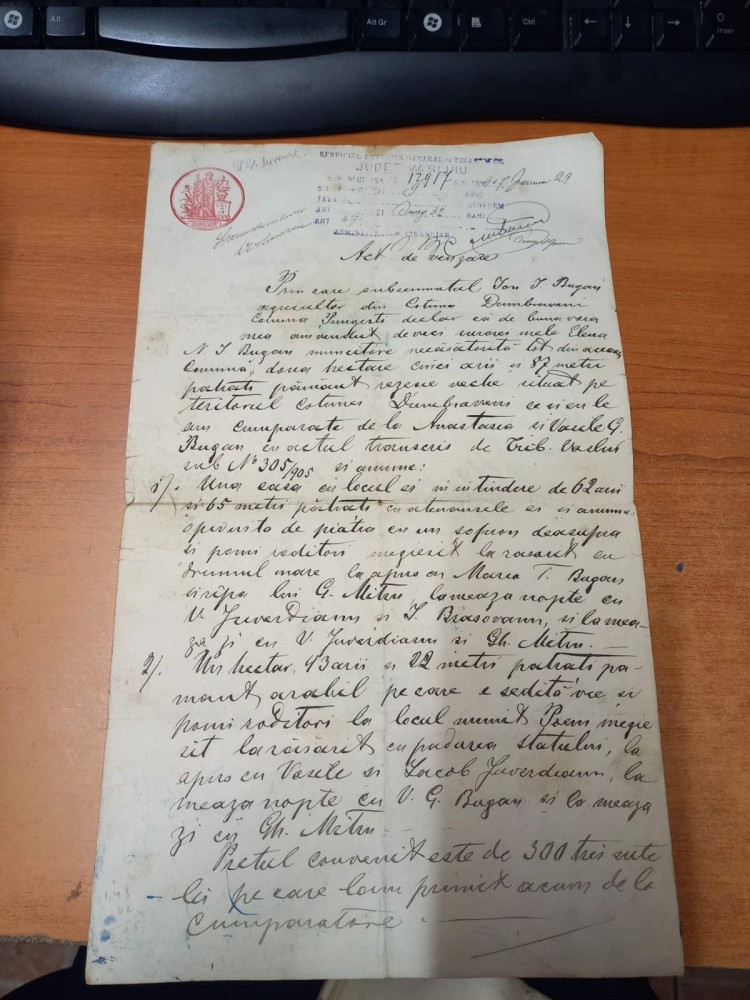 Alt
Alt Gr
Ctrl
0
Inser
JUDET VASLUIU
12917
29
ART
ART
BANI
ADMINISTRATOR FINANCIAR
Act de vinzare
Prin care subsemnatul Ion I Bugan
agricultor din Cotuna Dumbraveni
Comuna Pungesti declar că de buna voea
mea am vendut de veci surorei mele Elena
N I Bugan muncitore necăsătorită tot din aceea
Comună, doua hectare cinci arii si 87 metri
patrati pămănt rezesie vechie situat pe
teritoriul cotunei Dumbraveni ce si eu le
am cumparate de la Anastasia si Vasile G.
Bugan cu actul transcris de Trib. Vaslui
sub No 305/905 si anume:
1). Una casa cu locul ei in intindere de 62 arii
si 65 metri pătrati cu atenansele ei si anume:
de piatra cu un sopron deasupra
si pomi roditori megiesit la rasarit cu
drumul mare la apus cu Marea T. Bugan
si ripa lui G. Mitru, la meaza nopte cu
V. Juverdianu si I. Brasovanu, si la mea-
za zi cu V. Juverdianu si Gh. Mitru. —
2). Un hectar, 43 arii si 22 metri patrati pa-
mant arabil pe care e sedită vie si
pomi roditori la locul numit Poeni megie
sit la răsărit cu padurea statului, la
apus cu Vasile si Iacob Juverdianu, la
meaza nopte cu V. G. Bugan si la meaza
zi cu Gh. Mitru. -
Pretul convenit este de 300 trei sute
lei pe care lam primit acum de la
cumparatore. —